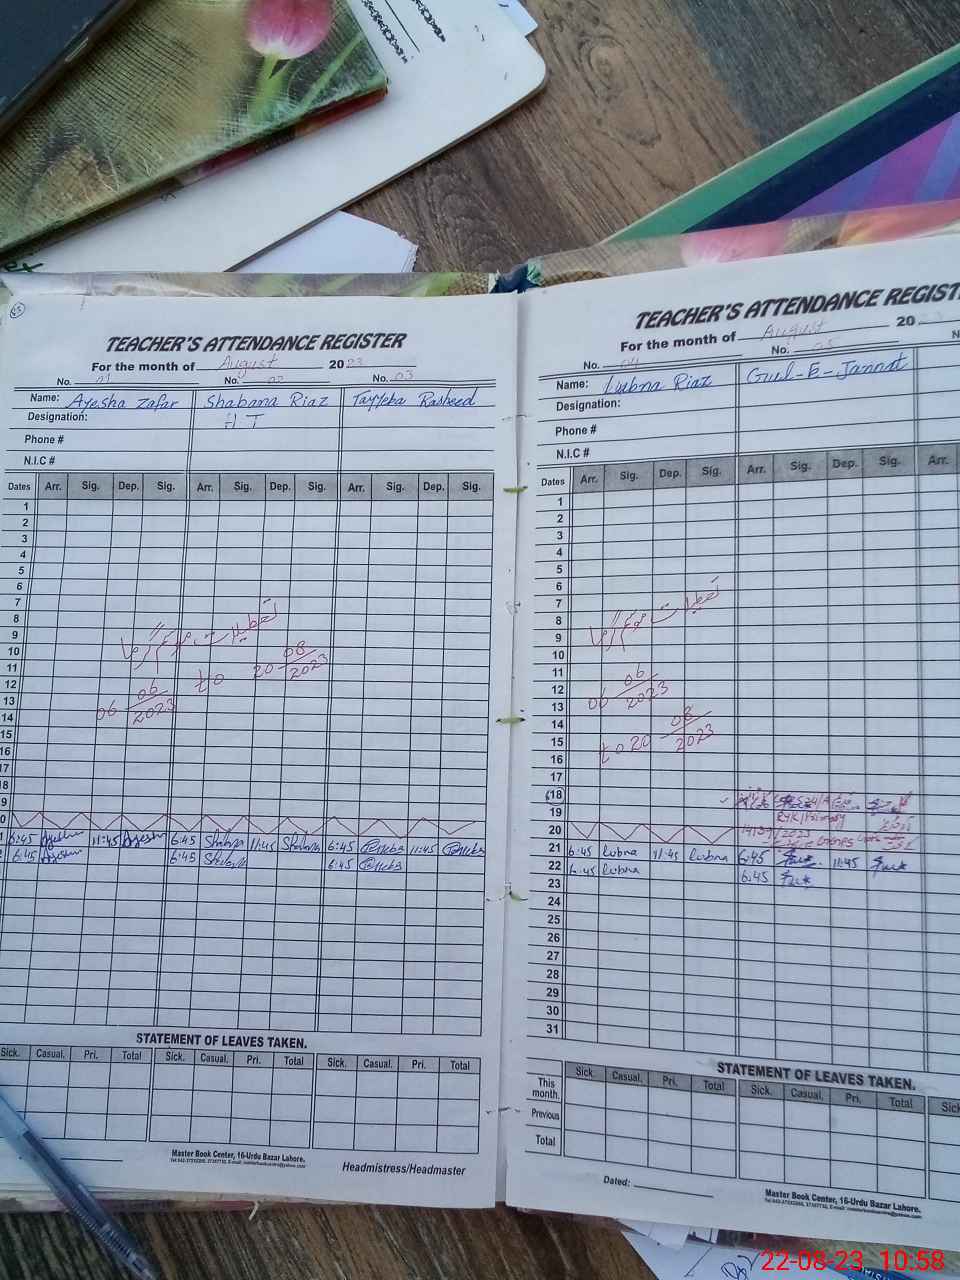 TEACHER'S ATTENDANCE REGISTER
For the month of August 2023
No. 01 No. 02 No. 03
Name: Ayesha Zafar Shabana Riaz Tayyeba Rasheed
Designation: H T
Phone #
N.I.C #
Dates Arr. Sig. Dep. Sig. Arr. Sig. Dep. Sig. Arr. Sig. Dep. Sig.
1
2
3
4
5
6
7
8
9
10
11
12
13
14
15
16
17
18
9
0
تعطیلات موسم گرما
06 06 2023 to 20 08 2023
1 6:45 11:45 6:45 11:45 6:45 11:45
2 6:45 6:45 6:45
STATEMENT OF LEAVES TAKEN.
Sick. Casual. Pri. Total Sick. Casual. Pri. Total Sick. Casual. Pri. Total
Master Book Center, 16-Urdu Bazar Lahore.
Headmistress/Headmaster
TEACHER'S ATTENDANCE REGIST
For the month of August 2023
No. 04 No. 05
Name: Lubna Riaz Gul-E-Jannat
Designation:
Phone #
N.I.C #
Dates Arr. Sig. Dep. Sig. Arr. Sig. Dep. Sig. Arr.
1
2
3
4
5
6
7
8
9
10
11
12
13
14
15
16
17
18
19
20
تعطیلات موسم گرما
06 06 2023
to 20 08 2023
21 6:45 Lubna 11:45 Lubna 6:45 11:45
22 6:45 Lubna 6:45
23
24
25
26
27
28
29
30
31
STATEMENT OF LEAVES TAKEN.
Sick. Casual. Pri. Total Sick. Casual. Pri. Total Sick
This month.
Previous
Total
Dated:
Master Book Center, 16-Urdu Bazar Lahore.
22-08-23 10:58